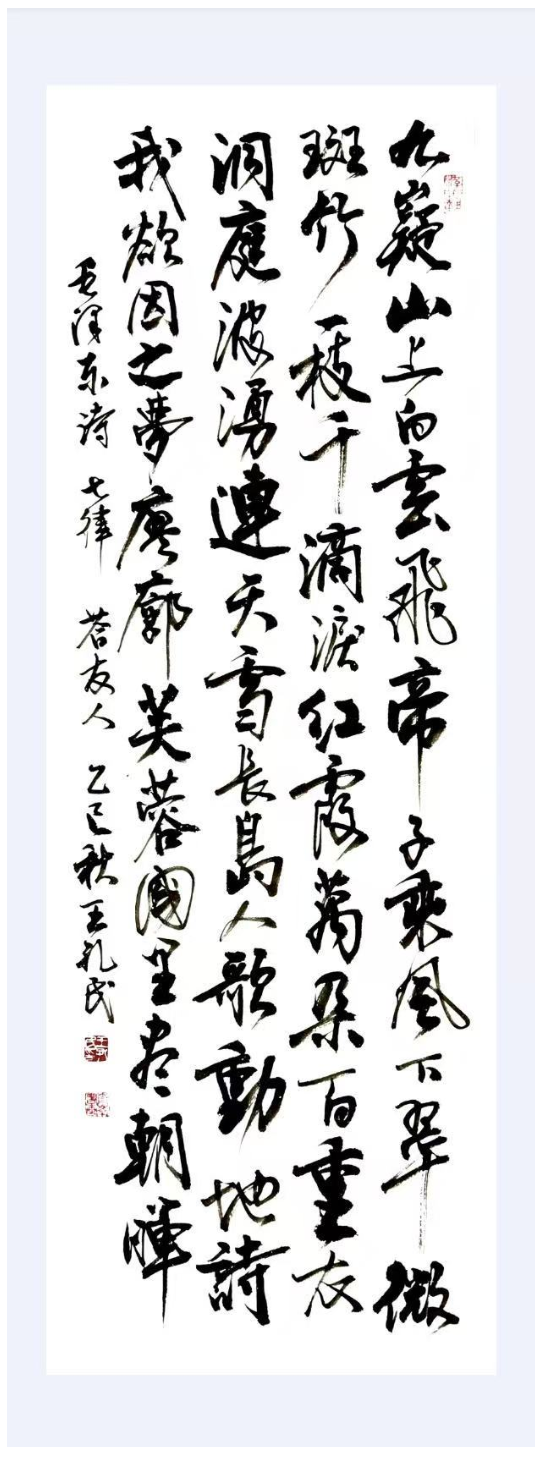 九嶷山上白雲飛帝子乘風下翠微
斑竹一枝千滴淚红霞萬朵百重衣
洞庭波湧連天雪長島人歌動地詩
我欲因之夢廖廓芙蓉國里盡朝暉
毛泽东诗 七律 荅友人 乙巳秋王礼民